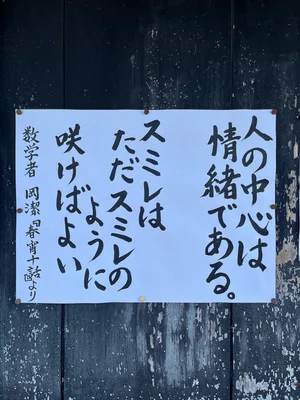 人の中心は
情緒である。
スミレは
ただスミレの
ように
咲けばよい
数学者 岡潔「春宵十話」より